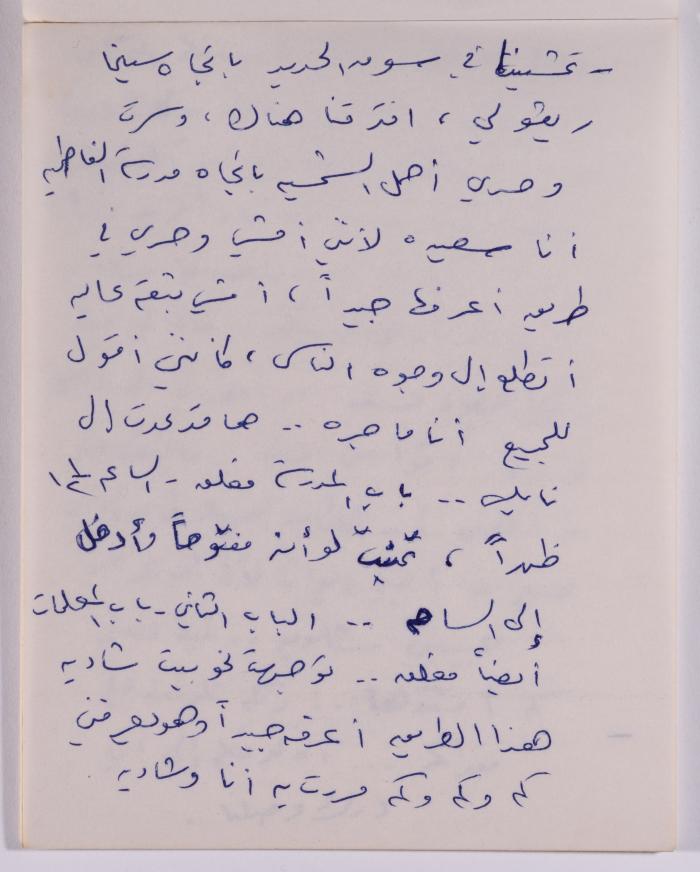 - تمشينا في سوق الحديد باتجاه سينما
ريفولي ، افترقنا هناك ، وسرت
وحدي أصل الشمس باتجاه مدرسة الفاطمية
أنا سعيده لأنني أمشي وحدي في
طريق أعرفها جيداً ، أمشي بثقة عاليه
أتطلع إلى وجوه الناس ، كأنني أقول
للجميع أنا ماجده .. ها قد عدت إلى
نابلس .. باب المدرسة مغلق - الساعه ١٢½
ظهراً ، تمنيّتُ لو أنه مفتوحاً لأدخل
إلى الساحه .. الباب الثاني - باب المعلمات
أيضاً مغلق .. توجهت نحو بيت شاديه
هذا الطريق أعرفه جيداً وهو يعرفني
كم وكم وكم مررت به أنا وشاديه